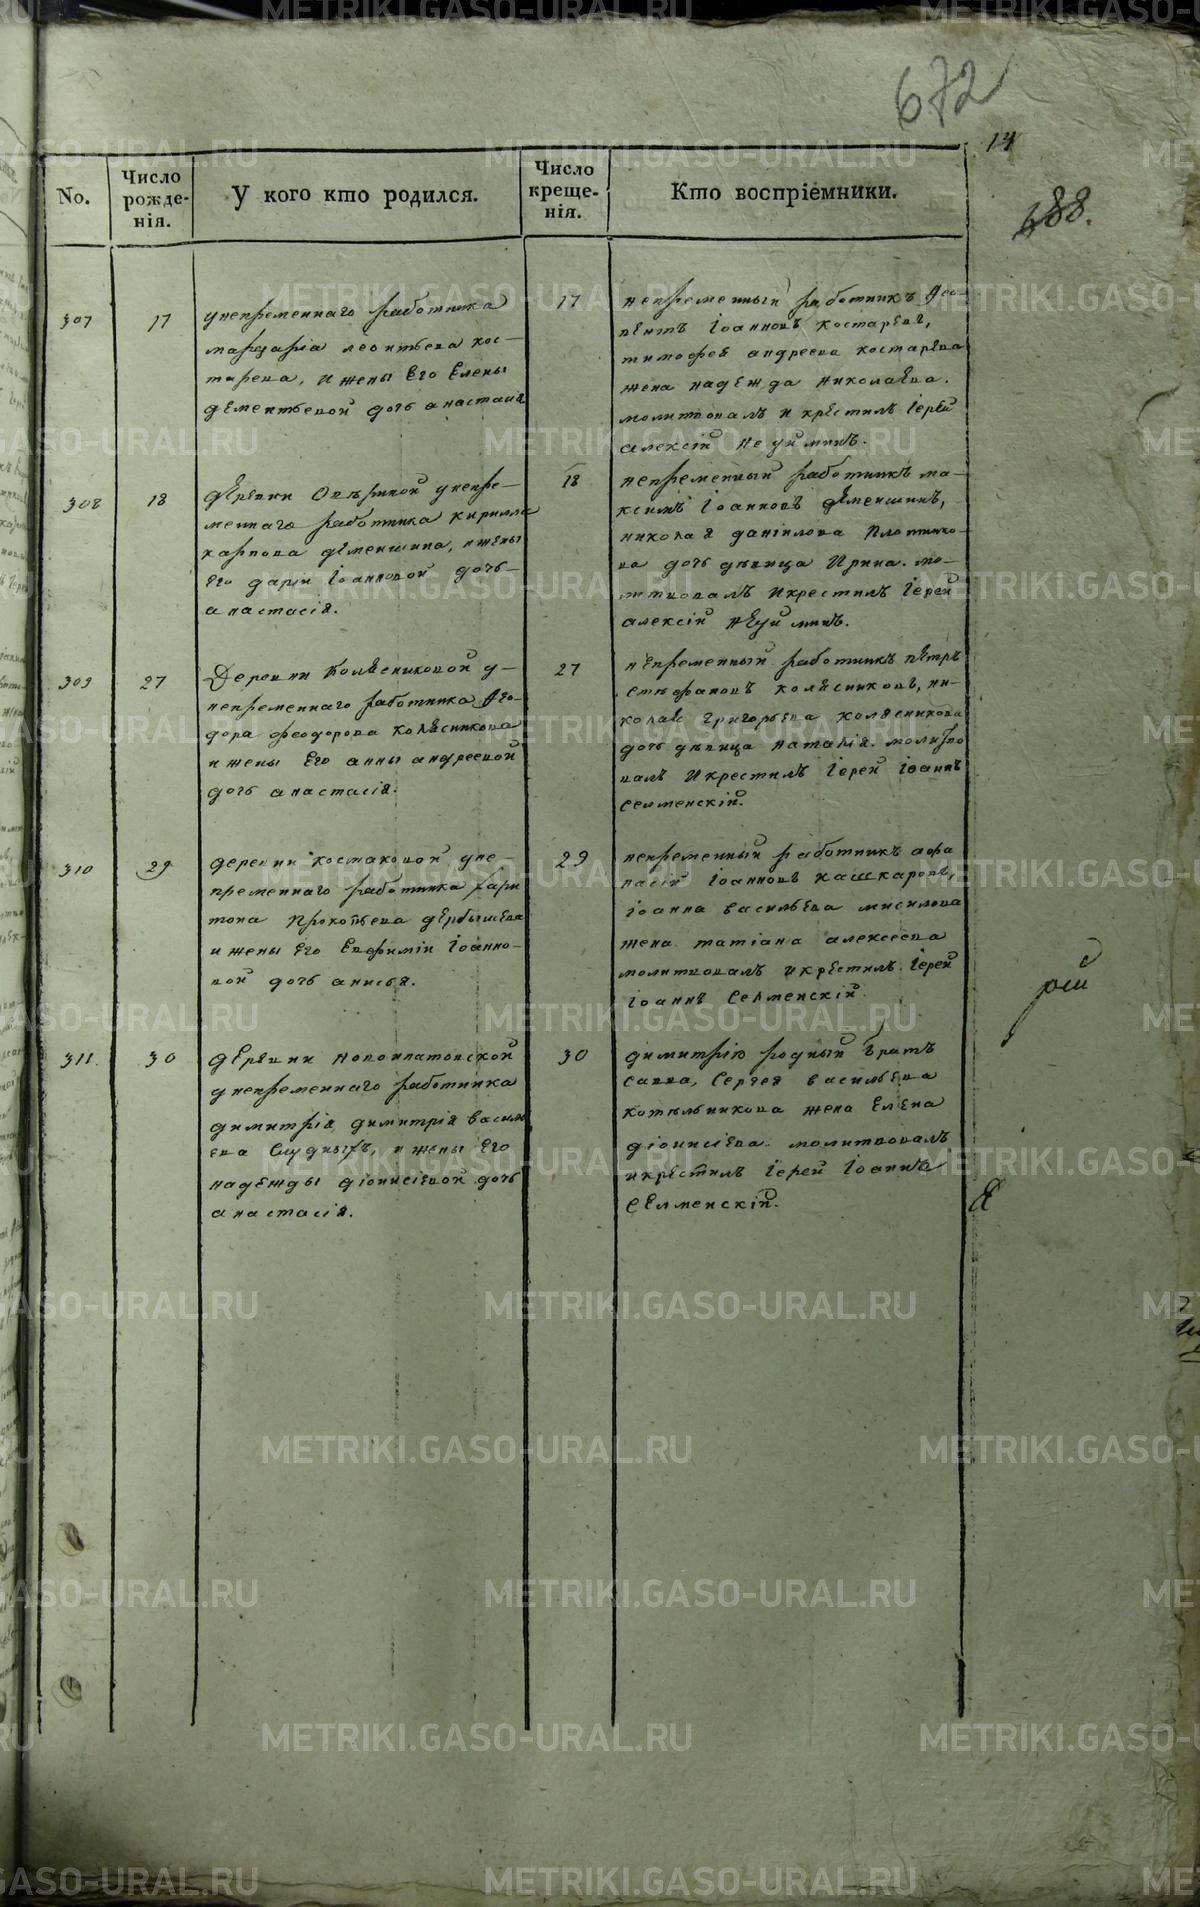 672
14
488.
No.
Число рожденія.
У кого кто родился.
Число крещенія.
Кто воспріемники.
307
17
унепременнаго работника
мардарія леонтьева кос-
тарева, и жены Его Елены
дементьевой дочь анастасія
17
непременный работникъ
Іоанновъ костаревъ,
тимофея андреева костарева
жена надежда николаева.
молитвовалъ и крестилъ Іерей
алексій неуйминъ.
308
18
деревни унепре-
меннаго работника кирилла
карпова деменшина, и жены
Его даріи Іоанновой дочь
анастасія.
18
непременный работникъ ма-
ксимъ Іоанновъ деменшинъ,
николая даніилова Плотнико-
ва дочь девица Ирина. мо-
литвовалъ и крестилъ Іерей
алексій неуйминъ.
309
27
Деревни Колясниковой у-
непременнаго работника Ѳео-
дора феодорова колясникова
и жены Его анны андреевой
дочь анастасія.
27
непременный работникъ петръ
стефановъ колясниковъ, ни-
колая григорьева колясникова
дочь девица наталія. молитво
валъ и крестилъ Іерей Іоаннъ
селменскій.
310
29
деревни костаковой уне-
пременнаго работника хари
тона Прокопьева дербышева
и жены Его Евфиміи Іоанно-
вой дочь анисья.
29
непременный работникъ афа
насій Іоанновъ кашкаровъ,
Іоанна васильева мисилова
жена татіана алексеева
молитвовалъ и крестилъ Іерей
Іоаннъ Селменскій.
рей
311.
30
деревни новоипатовской
унепременнаго работника
димитрія димитрія василь
ева Слудныхъ, и жены Его
надежды діонисіевой дочь
анастасія.
30
димитрію родный братъ
савва, Сергея васильева
котельникова жена Елена
діонисіева. молитвовалъ
и крестилъ Іерей Іоаннъ
Селменскій.
METRIKI.GASO-URAL.RU